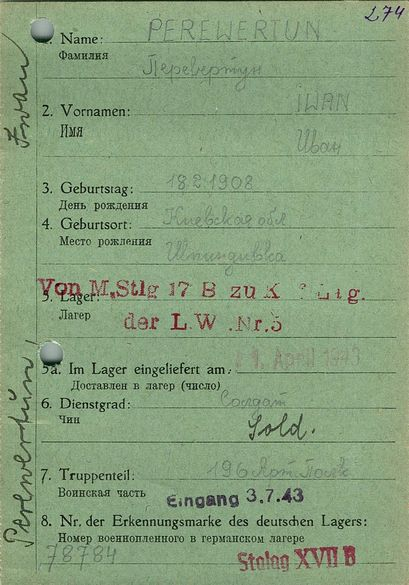 274
1. Name: PEREWERTUN
Фамилия Перевертун
2. Vornamen: IWAN
Имя Иван
3. Geburtstag: 18.2.1908
День рождения
4. Geburtsort: Киевская обл
Место рождения
Von M.Stlg 17 B zu K Lg.
5. Lager:
Лагер der L.W .Nr.5
April 1943
5a. Im Lager eingeliefert am:
Доставлен в лагер (число)
6. Dienstgrad: Солдат
Чин Sold.
7. Truppenteil: 196
Воинская часть Eingang 3.7.43
8. Nr. der Erkennungsmarke des deutschen Lagers:
Номер военнопленного в германском лагере
78784 Stalag XVII B
Perewertun, Iwan